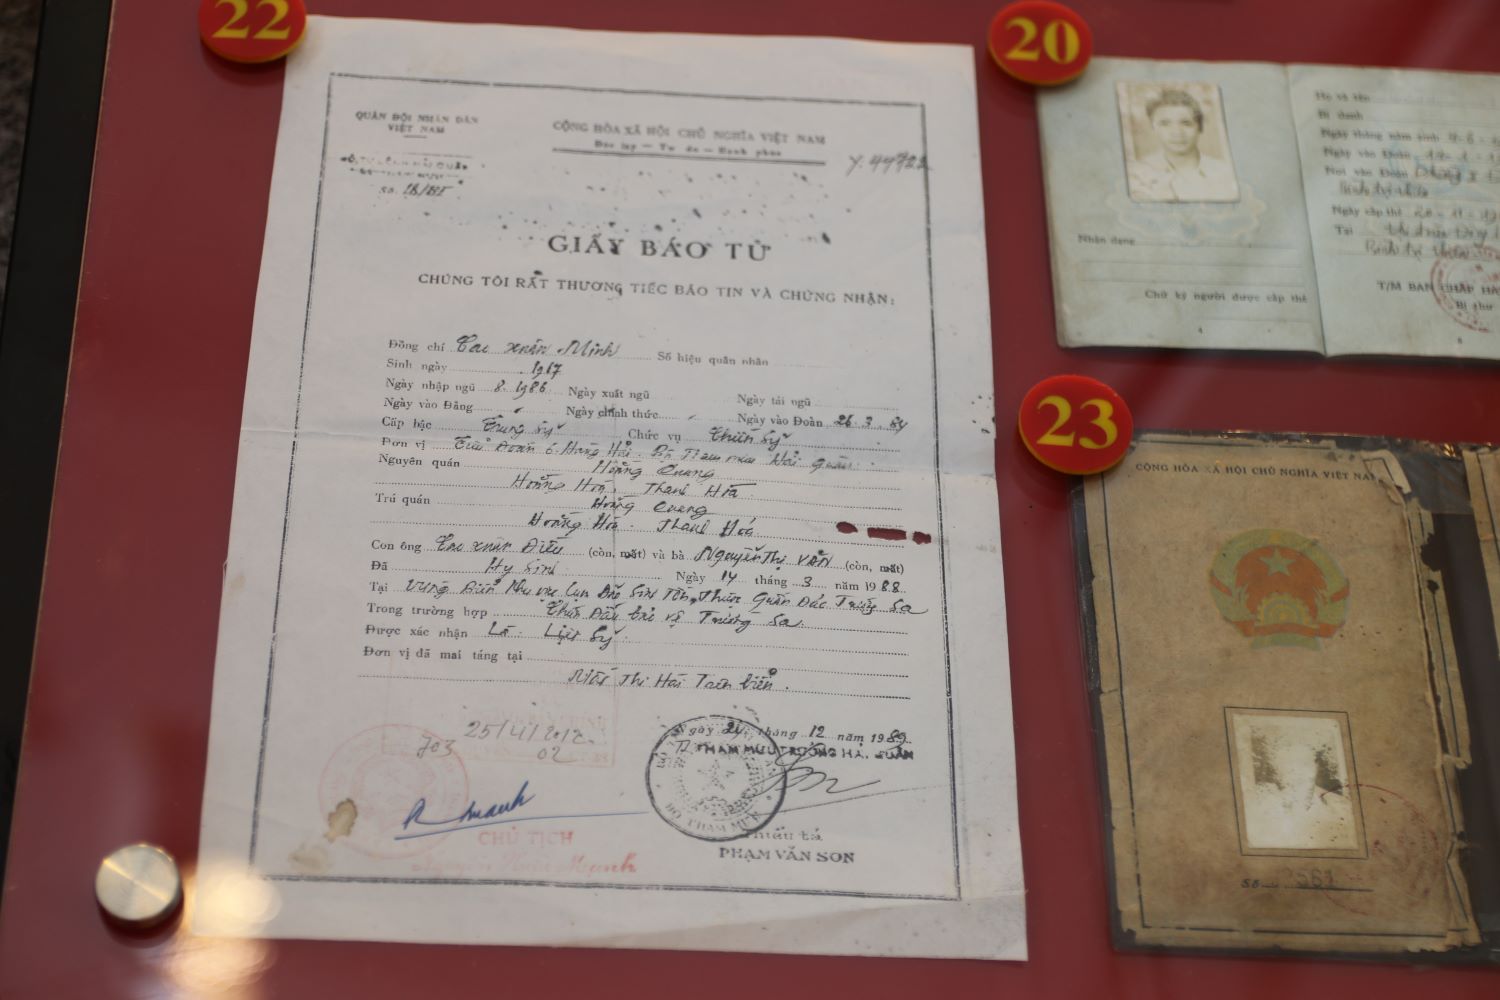 22
QUÂN ĐỘI NHÂN DÂN
VIỆT NAM
CỘNG HÒA XÃ HỘI CHỦ NGHĨA VIỆT NAM
Độc lập — Tự do — Hạnh phúc
GIẤY BÁO TỬ
CHÚNG TÔI RẤT THƯƠNG TIẾC BÁO TIN VÀ CHỨNG NHẬN:
Đồng chí Cao xuân Minh Số hiệu quân nhân
Sinh ngày 1967
Ngày nhập ngũ 8.1986 Ngày xuất ngũ Ngày tái ngũ
Ngày vào Đảng Ngày chính thức Ngày vào Đoàn 26.3.84
Cấp bậc Trung Sỹ Chức vụ Chiến Sỹ
Đơn vị Tiểu Đoàn 6 Hải Quân
Nguyên quán Hoằng Quang
Hoằng Hoá. Thanh Hóa
Trú quán Hoằng Quang
Hoằng Hóa. Thanh Hoá
Con ông Cao xuân Điều (còn, mất) và bà Nguyễn Thị Vần (còn, mất)
Đã Hy Sinh Ngày 14 tháng 3 năm 1988
Tại Vùng Biển Khu vực Cụm Đảo Sinh Tồn, Thuộc Quần Đảo Trường Sa
Trong trường hợp Chiến Đấu bảo vệ Trường Sa
Được xác nhận Là Liệt Sỹ
Đơn vị đã mai táng tại
Mất Thi Hài Trên biển.
Ngày 24 tháng 12 năm 1989
THAM MƯU TRƯỞNG HẢI QUÂN
BỘ THAM MƯU
Thiếu tá
PHẠM VĂN SƠN
703
25/4/2012
02
CHỦ TỊCH
20
Họ và tên
Bí danh
Ngày tháng năm sinh
Ngày vào Đoàn
Nơi vào Đoàn
Ngày cấp thẻ
Tại
Nhận dạng
Chữ ký người được cấp thẻ
T/M BAN CHẤP HÀ
Bí thư
4
23
CỘNG HÒA XÃ HỘI CHỦ NGHĨA VIỆT NAM
Số